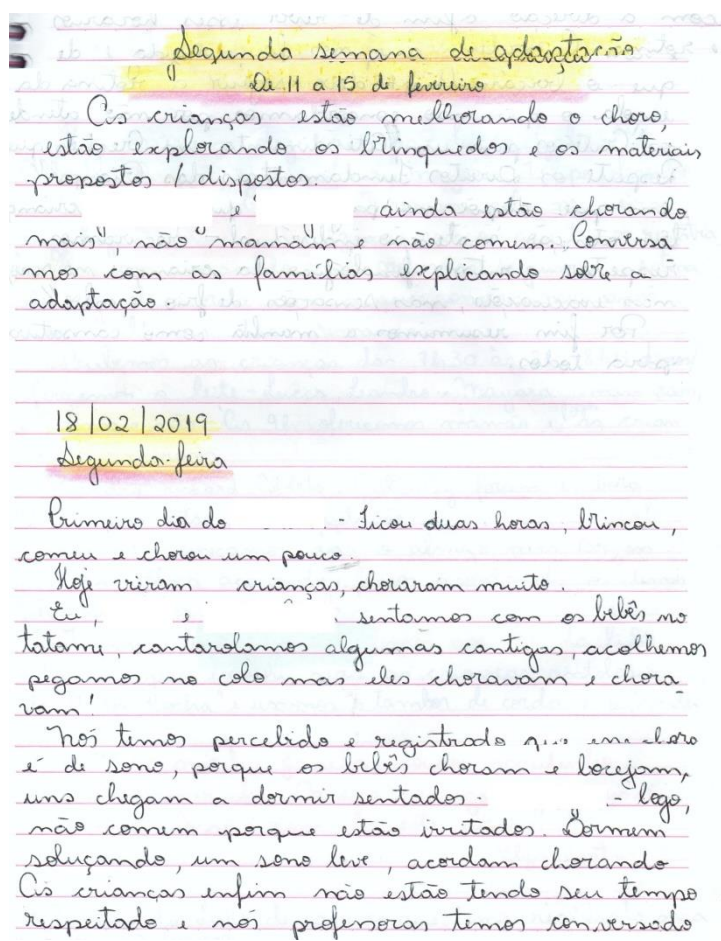 "Segunda semana de adaptação
De 11 a 15 de fevereiro
As crianças estão melhorando o choro,
estão explorando os brinquedos e os materiais
propostos / dispostos.
e ainda estão chorando
mais", não "mamam" e não comem. Conversa
mos com as famílias explicando sobre a
adaptação.
18/02/2019
Segunda-feira
Primeiro dia do - Ficou duas horas, brincou,
comeu e chorou um pouco.
Hoje vieram crianças, choraram muito.
Eu, e sentamos com os bebês no
tatame, cantarolamos algumas cantigas, acolhemos
pegamos no colo mas eles choravam e chora
vam!
Nós temos percebido e registrado que choro
é de sono, porque os bebês choram e bocejam,
uns chegam a dormir sentados. - logo,
não comem porque estão irritados. Dormem
soluçando, um sono leve, acordam chorando
As crianças enfim não estão tendo seu tempo
respeitado e nós professoras temos conversado